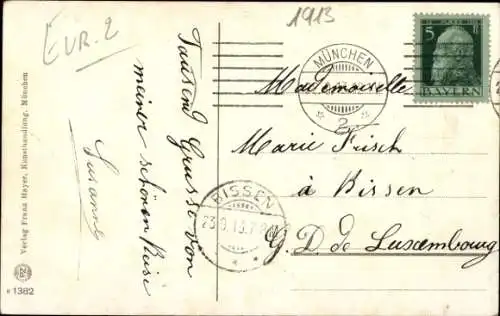 1913
EUR. 2
Tausend Grüsse von
meiner schönen Reise
Verlag Franz Mayer, Kunsthandlung, München
1382
MÜNCHEN
2
5
BAYERN
Mademoiselle
Marie Frisch
à Bissen
G. D. de Luxembourg
BISSEN